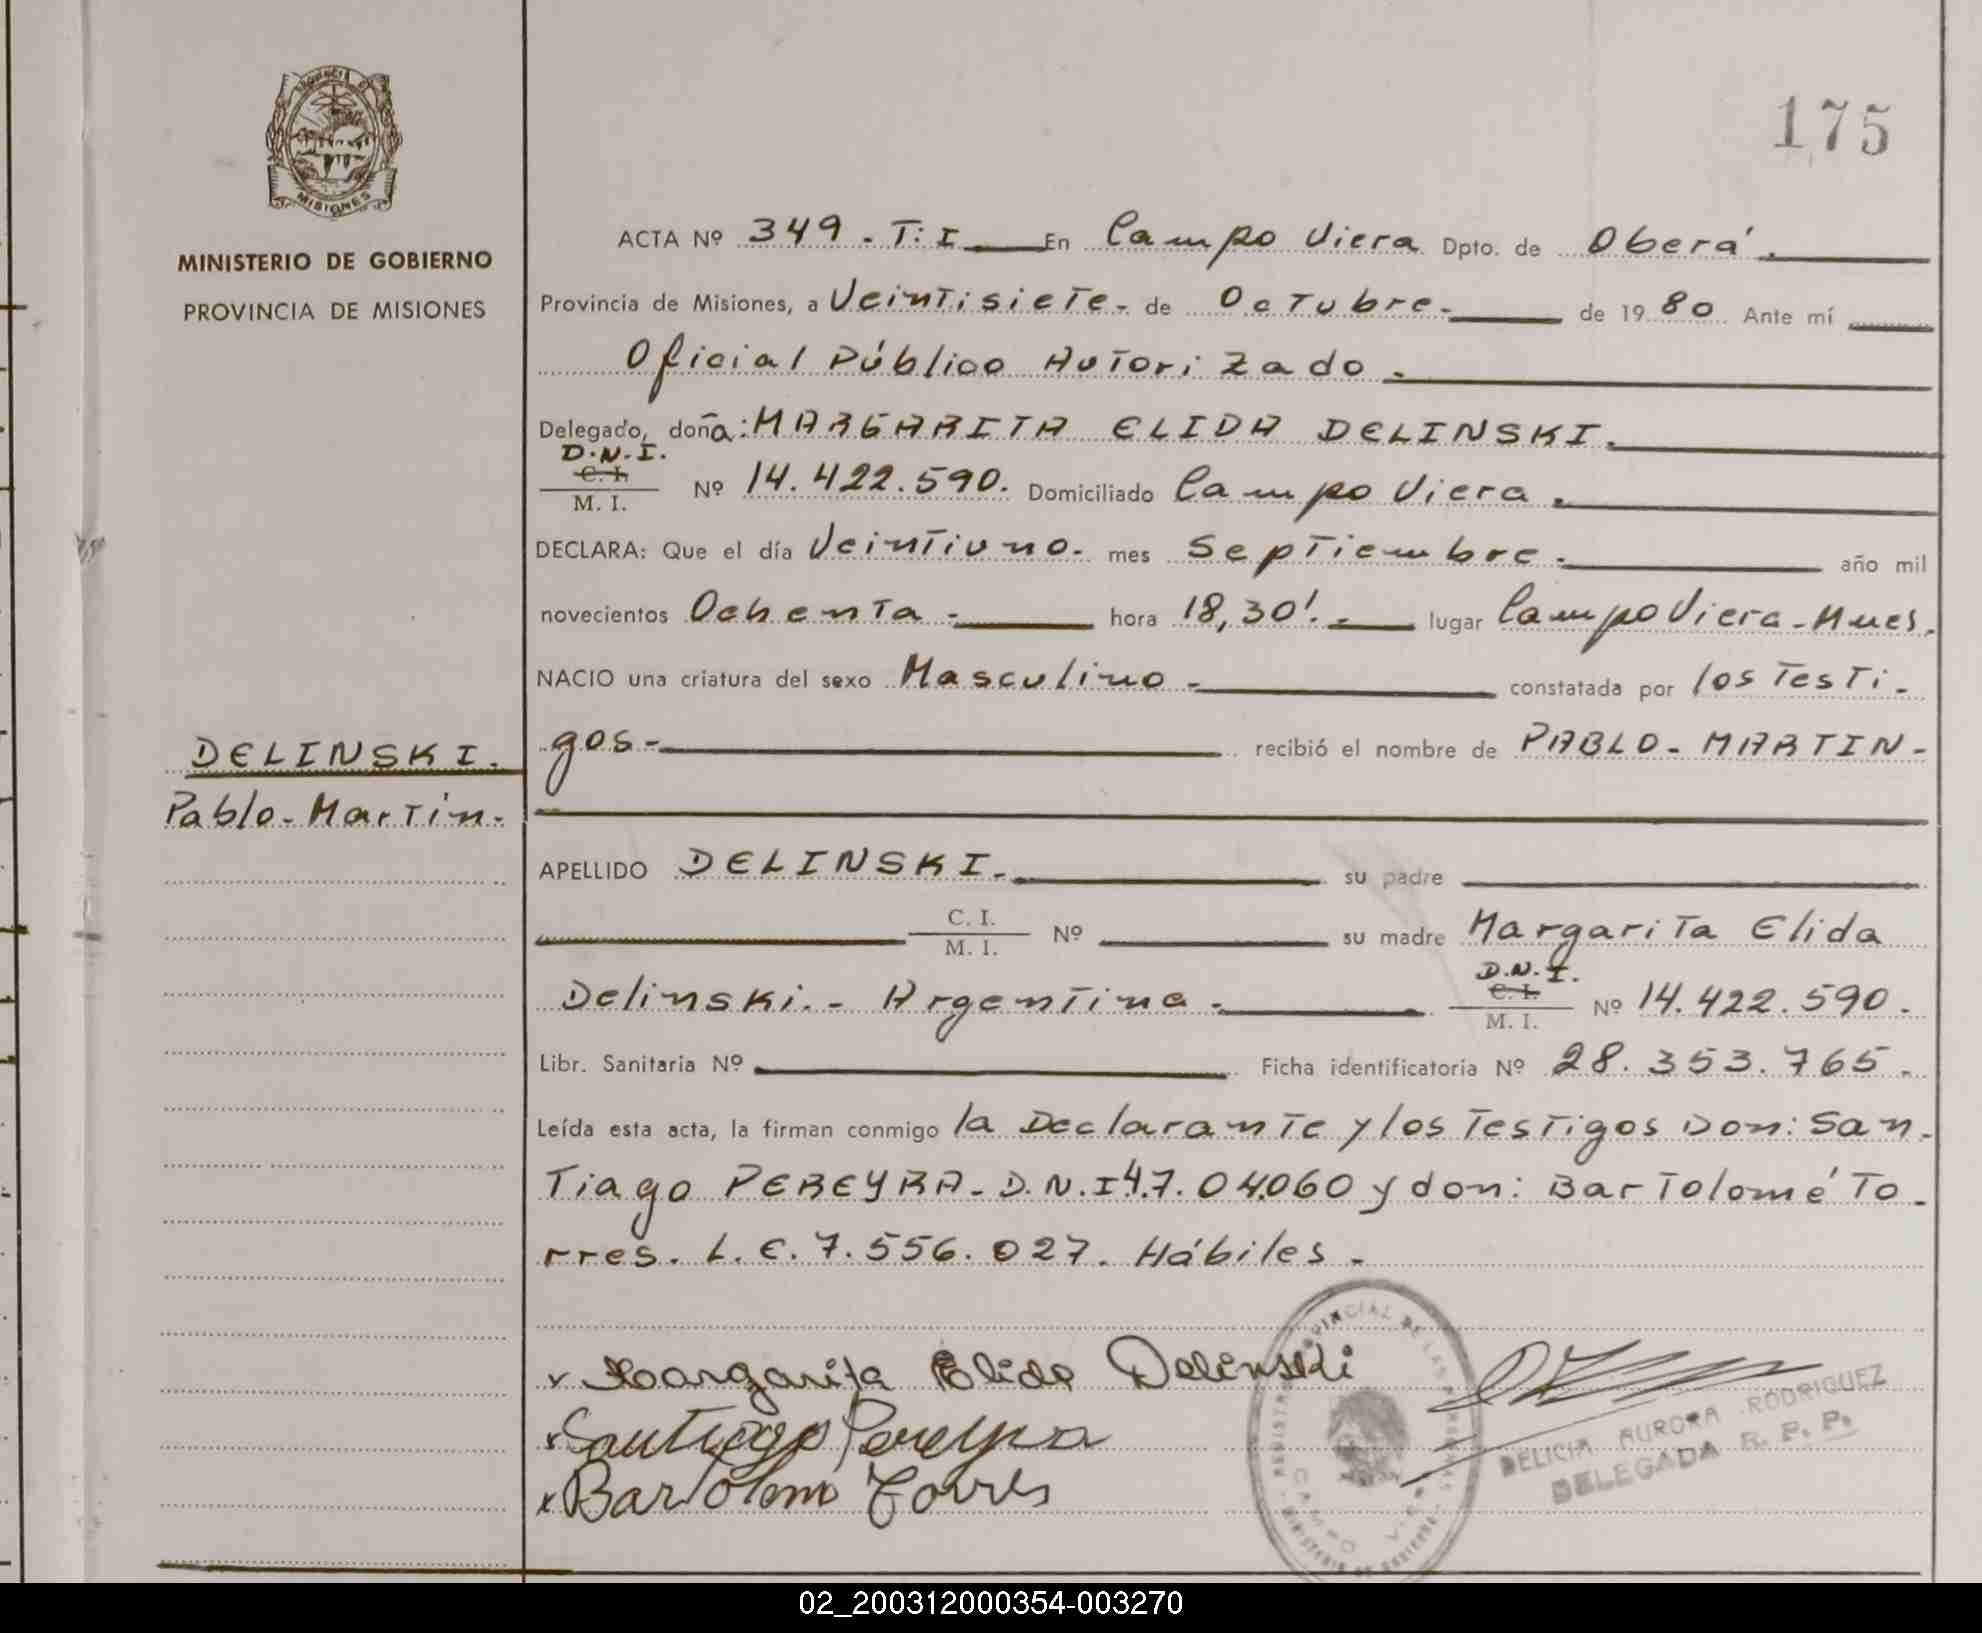 PROVINCIA DE
MISIONES
MINISTERIO DE GOBIERNO
PROVINCIA DE MISIONES
DELINSKI.
Pablo-Martin.
175
ACTA Nº 349.T:I En Campo Viera Dpto. de Oberá.
Provincia de Misiones, a Veintisiete- de Octubre. de 1980 Ante mí
Oficial Público Autorizado.
Delegado, doña: MARGARITA ELIDA DELINSKI.
D.N.I.
C. I.
M. I. Nº 14.422.590. Domiciliado Campo Viera.
DECLARA: Que el día Veintiuno. mes Septiembre. año mil
novecientos Ochenta. hora 18,30'. lugar Campo Viera-Mnes.
NACIO una criatura del sexo Masculino. constatada por los Testi-
gos- recibió el nombre de PABLO-MARTIN-
APELLIDO DELINSKI. su padre
C. I.
M. I. Nº su madre Margarita Elida
D.N.I.
Delinski.- Argentina. C. I.
M. I. Nº 14.422.590.
Libr. Sanitaria Nº Ficha identificatoria Nº 28.353.765.
Leída esta acta, la firman conmigo la Declarante y los Testigos Don: San-
Tiago PEREYRA-D.N.I y don: Bartolomé To-
rres. L.E.7.556.027. Hábiles.
x Margarita Elida Delinski
x Santiago Pereyra
x Bartolom Torres
REGISTRO PROVINCIAL DE LAS PERSONAS
CAMPO VIERA
MINISTERIO DE GOBIERNO
DELICIA AURORA RODRIGUEZ
DELEGADA R. P. P.
02_200312000354-003270